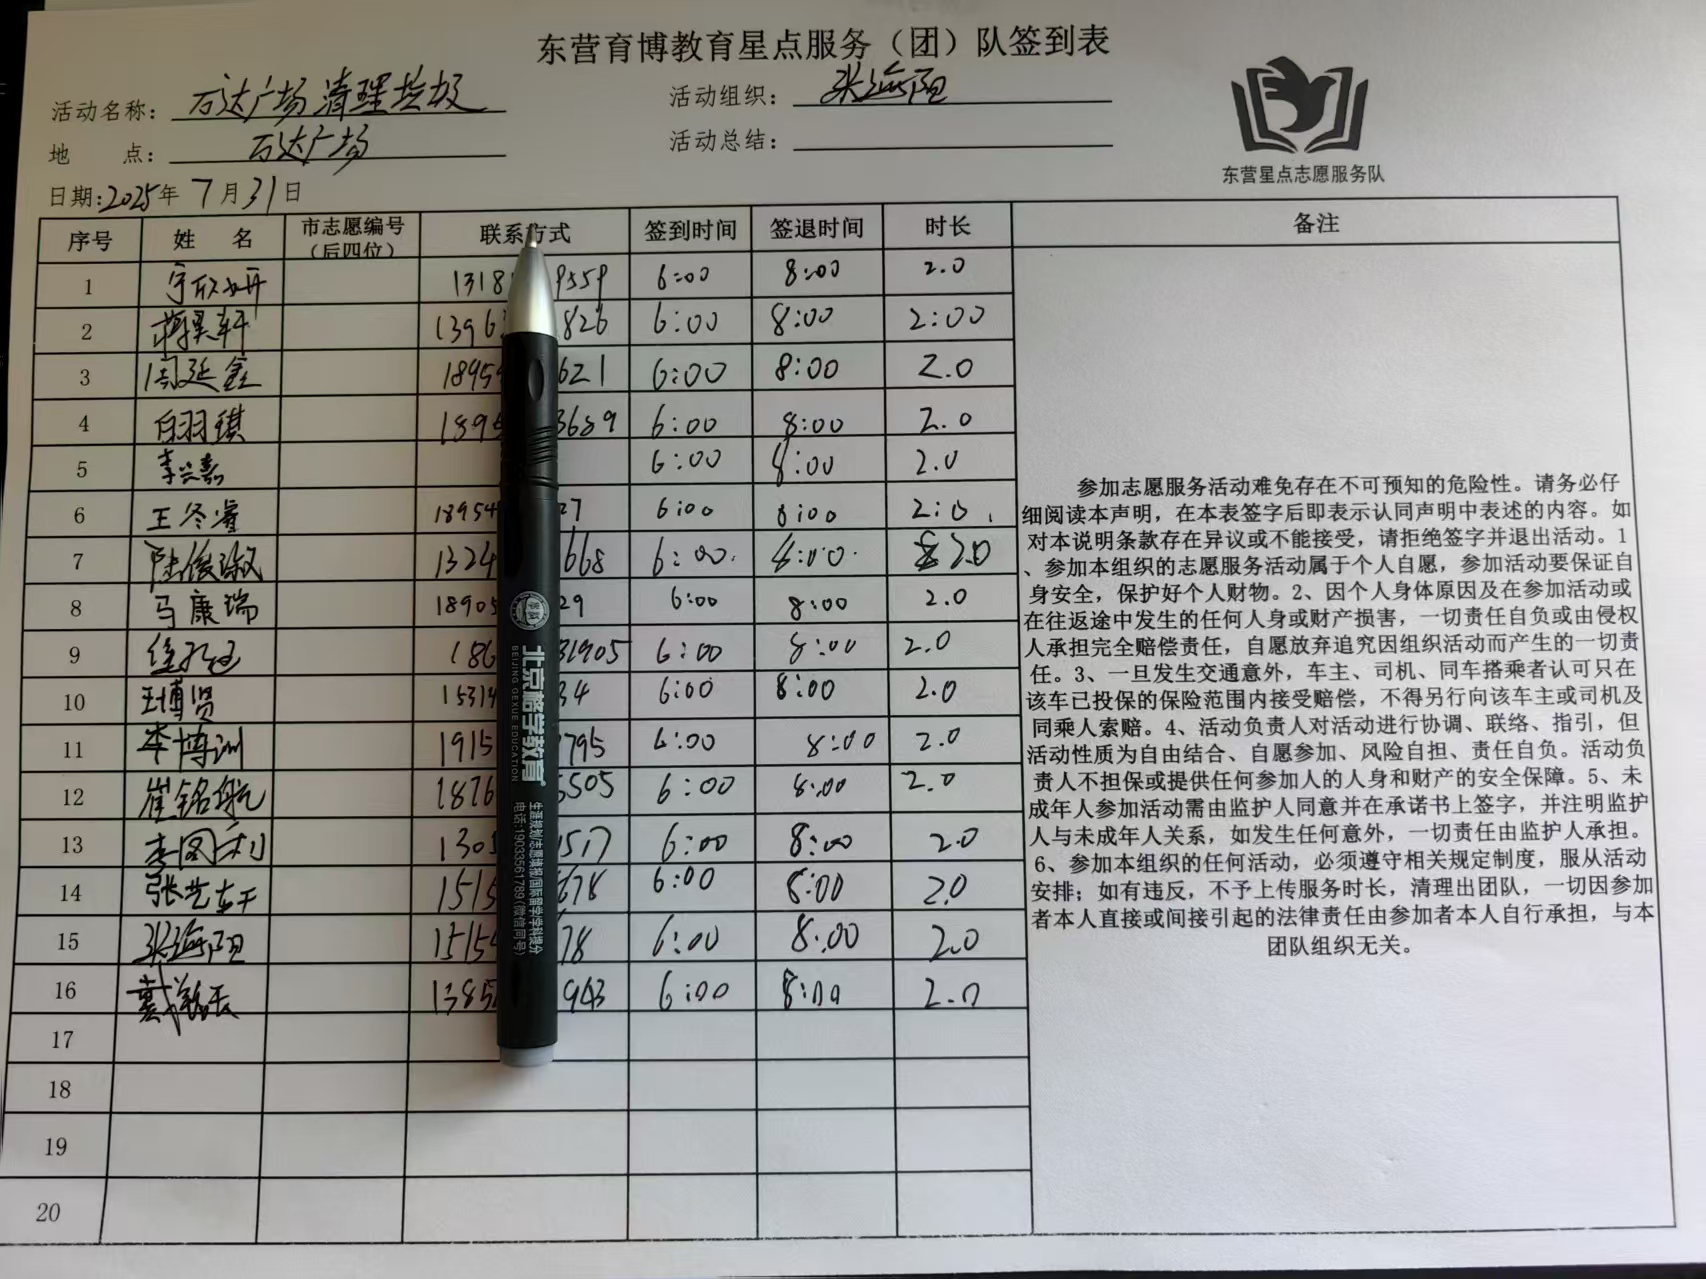 东营育博教育星点服务（团）队签到表
活动名称：万达广场清理垃圾
活动组织：张海阳
地 点：万达广场
活动总结：
日期:2025年 7月31日
东营星点志愿服务队
序号 姓 名 市志愿编号（后四位） 联系方式 签到时间 签退时间 时长 备注
1 1318 9559 6:00 8:00 2.0
2 蒋昊轩 1396 826 6:00 8:00 2:00
3 周延鑫 1895 621 6:00 8:00 2.0
4 白羽琪 1895 3689 6:00 8:00 2.0
5 李兴嘉 6:00 8:00 2.0
6 王冬睿 18954 27 6:00 8:00 2:0
7 陆俊淑 1324 668 6:00 8:00 2.0
8 马康瑞 18905 29 6:00 8:00 2.0
9 186 31905 6:00 8:00 2.0
10 王博贤 15314 34 6:00 8:00 2.0
11 李博洲 1915 795 6:00 8:00 2.0
12 崔铭航 1876 5505 6:00 8:00 2.0
13 李图利 130 1517 6:00 8:00 2.0
14 张艺轩 1515 678 6:00 8:00 2.0
15 张海阳 15154 78 6:00 8:00 2.0
16 戴 1385 943 6:00 8:00 2.0
17
18
19
20
参加志愿服务活动难免存在不可预知的危险性。请务必仔
细阅读本声明，在本表签字后即表示认同声明中表述的内容。如
对本说明条款存在异议或不能接受，请拒绝签字并退出活动。1
、参加本组织的志愿服务活动属于个人自愿，参加活动要保证自
身安全，保护好个人财物。2、因个人身体原因及在参加活动或
在往返途中发生的任何人身或财产损害，一切责任自负或由侵权
人承担完全赔偿责任，自愿放弃追究因组织活动而产生的一切责
任。3、一旦发生交通意外，车主、司机、同车搭乘者认可只在
该车已投保的保险范围内接受赔偿，不得另行向该车主或司机及
同乘人索赔。4、活动负责人对活动进行协调、联络、指引，但
活动性质为自由结合、自愿参加、风险自担、责任自负。活动负
责人不担保或提供任何参加人的人身和财产的安全保障。5、未
成年人参加活动需由监护人同意并在承诺书上签字，并注明监护
人与未成年人关系，如发生任何意外，一切责任由监护人承担。
6、参加本组织的任何活动，必须遵守相关规定制度，服从活动
安排；如有违反，不予上传服务时长，清理出团队，一切因参加
者本人直接或间接引起的法律责任由参加者本人自行承担，与本
团队组织无关。
北京酷学教育
BEIJING GEXUE EDUCATION
生涯规划/志愿填报/国际留学/学科提分
电话:19033561789(微信同号)